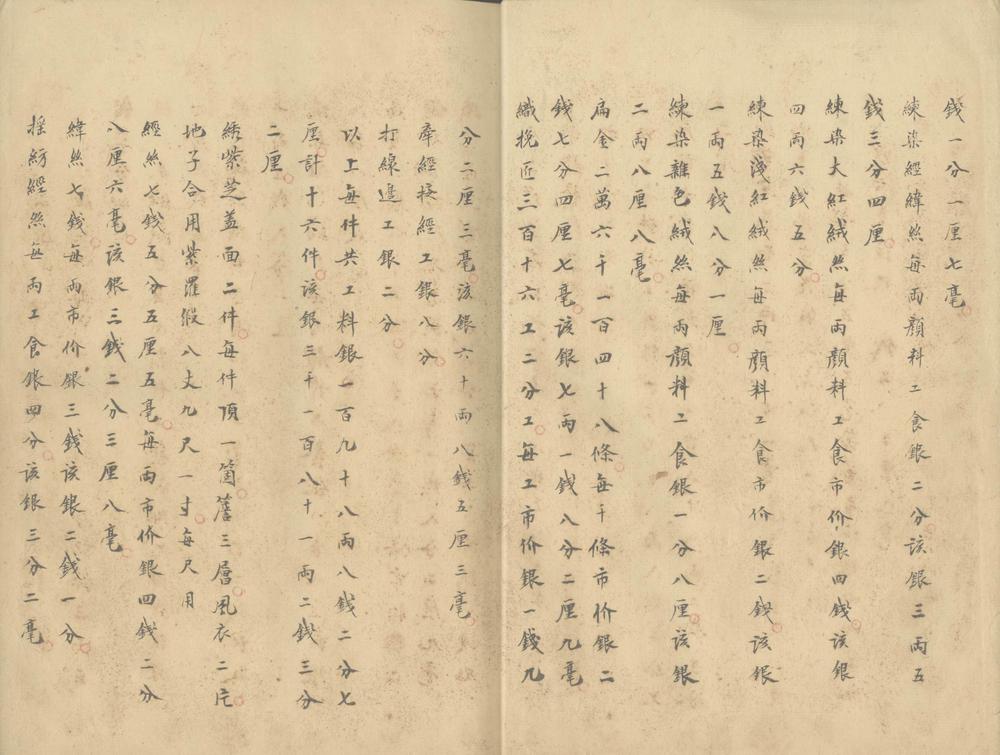 錢一分一厘七毫
練染經緯絲每両顔料工食銀二分該銀三両五
錢三分四厘
練染大紅絨絲每両顔料工食市价銀四錢該銀
四両六錢五分
練染淺紅絨絲每両顔料工食市价銀二錢該銀
一両五錢八分一厘
練染雜色絨絲每両顔料工食銀一分八厘該銀
二両八厘八毫
扁金二萬六千一百四十八條每千條市价銀二
錢七分四厘七毫該銀七両一錢八分二厘九毫
織挽匠三百十六工二分工每工市价銀一錢九
分二厘三毫該銀六十両八錢五厘三毫
牽經接經工銀八分
打線邊工銀二分
以上每件共工料銀一百九十八両八錢二分七
厘計十六件該銀三千一百八十一両二錢三分
二厘
綉紫芝盖面二件每件頂一箇簷三層風衣二片
地子合用紫羅假八丈九尺一寸每尺用
經絲七錢五分五厘五毫每両市价銀四錢二分
八厘六毫該銀三錢二分三厘八毫
緯絲七錢每両市价銀三錢該銀二錢一分
揺紡經絲每両工食銀四分該銀三分二毫